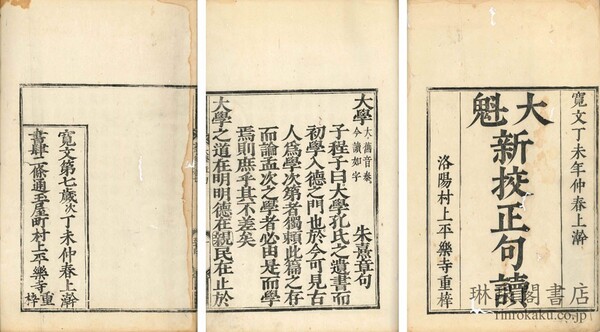 寛文丁未年仲春上澣
大魁
新挍正句讀
洛陽村上平樂寺重梓
大學 大舊音泰 今讀如字 朱熹章句
子程子曰大學孔氏之遺書而
初學入德之門也於今可見古
人爲學次第者獨頼此篇之存
而論孟次之學者必由是而學
焉則庶乎其不差矣
大學之道在明明德在親民在止於
寛文第七歳次丁未仲春上澣
書肆二條通玉屋町村上平樂寺重梓
琳琅閣書店
rinrokaku.co.jp